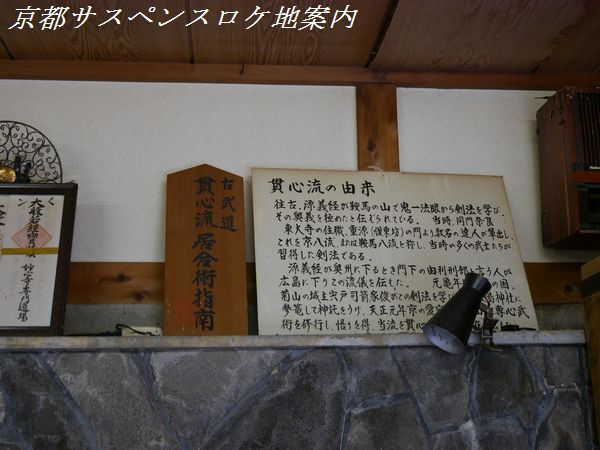 京都サスペンスロケ地案内
古武道
貫心流居合術指南
貫心流の由来
往古、源義経が鞍馬の山で鬼一法眼から剣法を学び、
その奥義を極めたと伝えられている。 当時、同門
東大寺の住職、重源(俊乗坊)の門より数名の達人が輩出し、
これを京八流、または鞍馬八流と称し、当時の多くの武士たちが
習得した剣法である。
源義経が奥州に下るとき門下の由利刑部と言う人が
広島に下りこの流儀を伝した。 元亀年 の国、
菊山の城主宍戸司箭家俊がこの剣法を学 神社に
参篭して神託をうけ、天正元年京の愛宕 専心武
術を修行し、悟りを得、当流を貫心
妙心寺専門道場